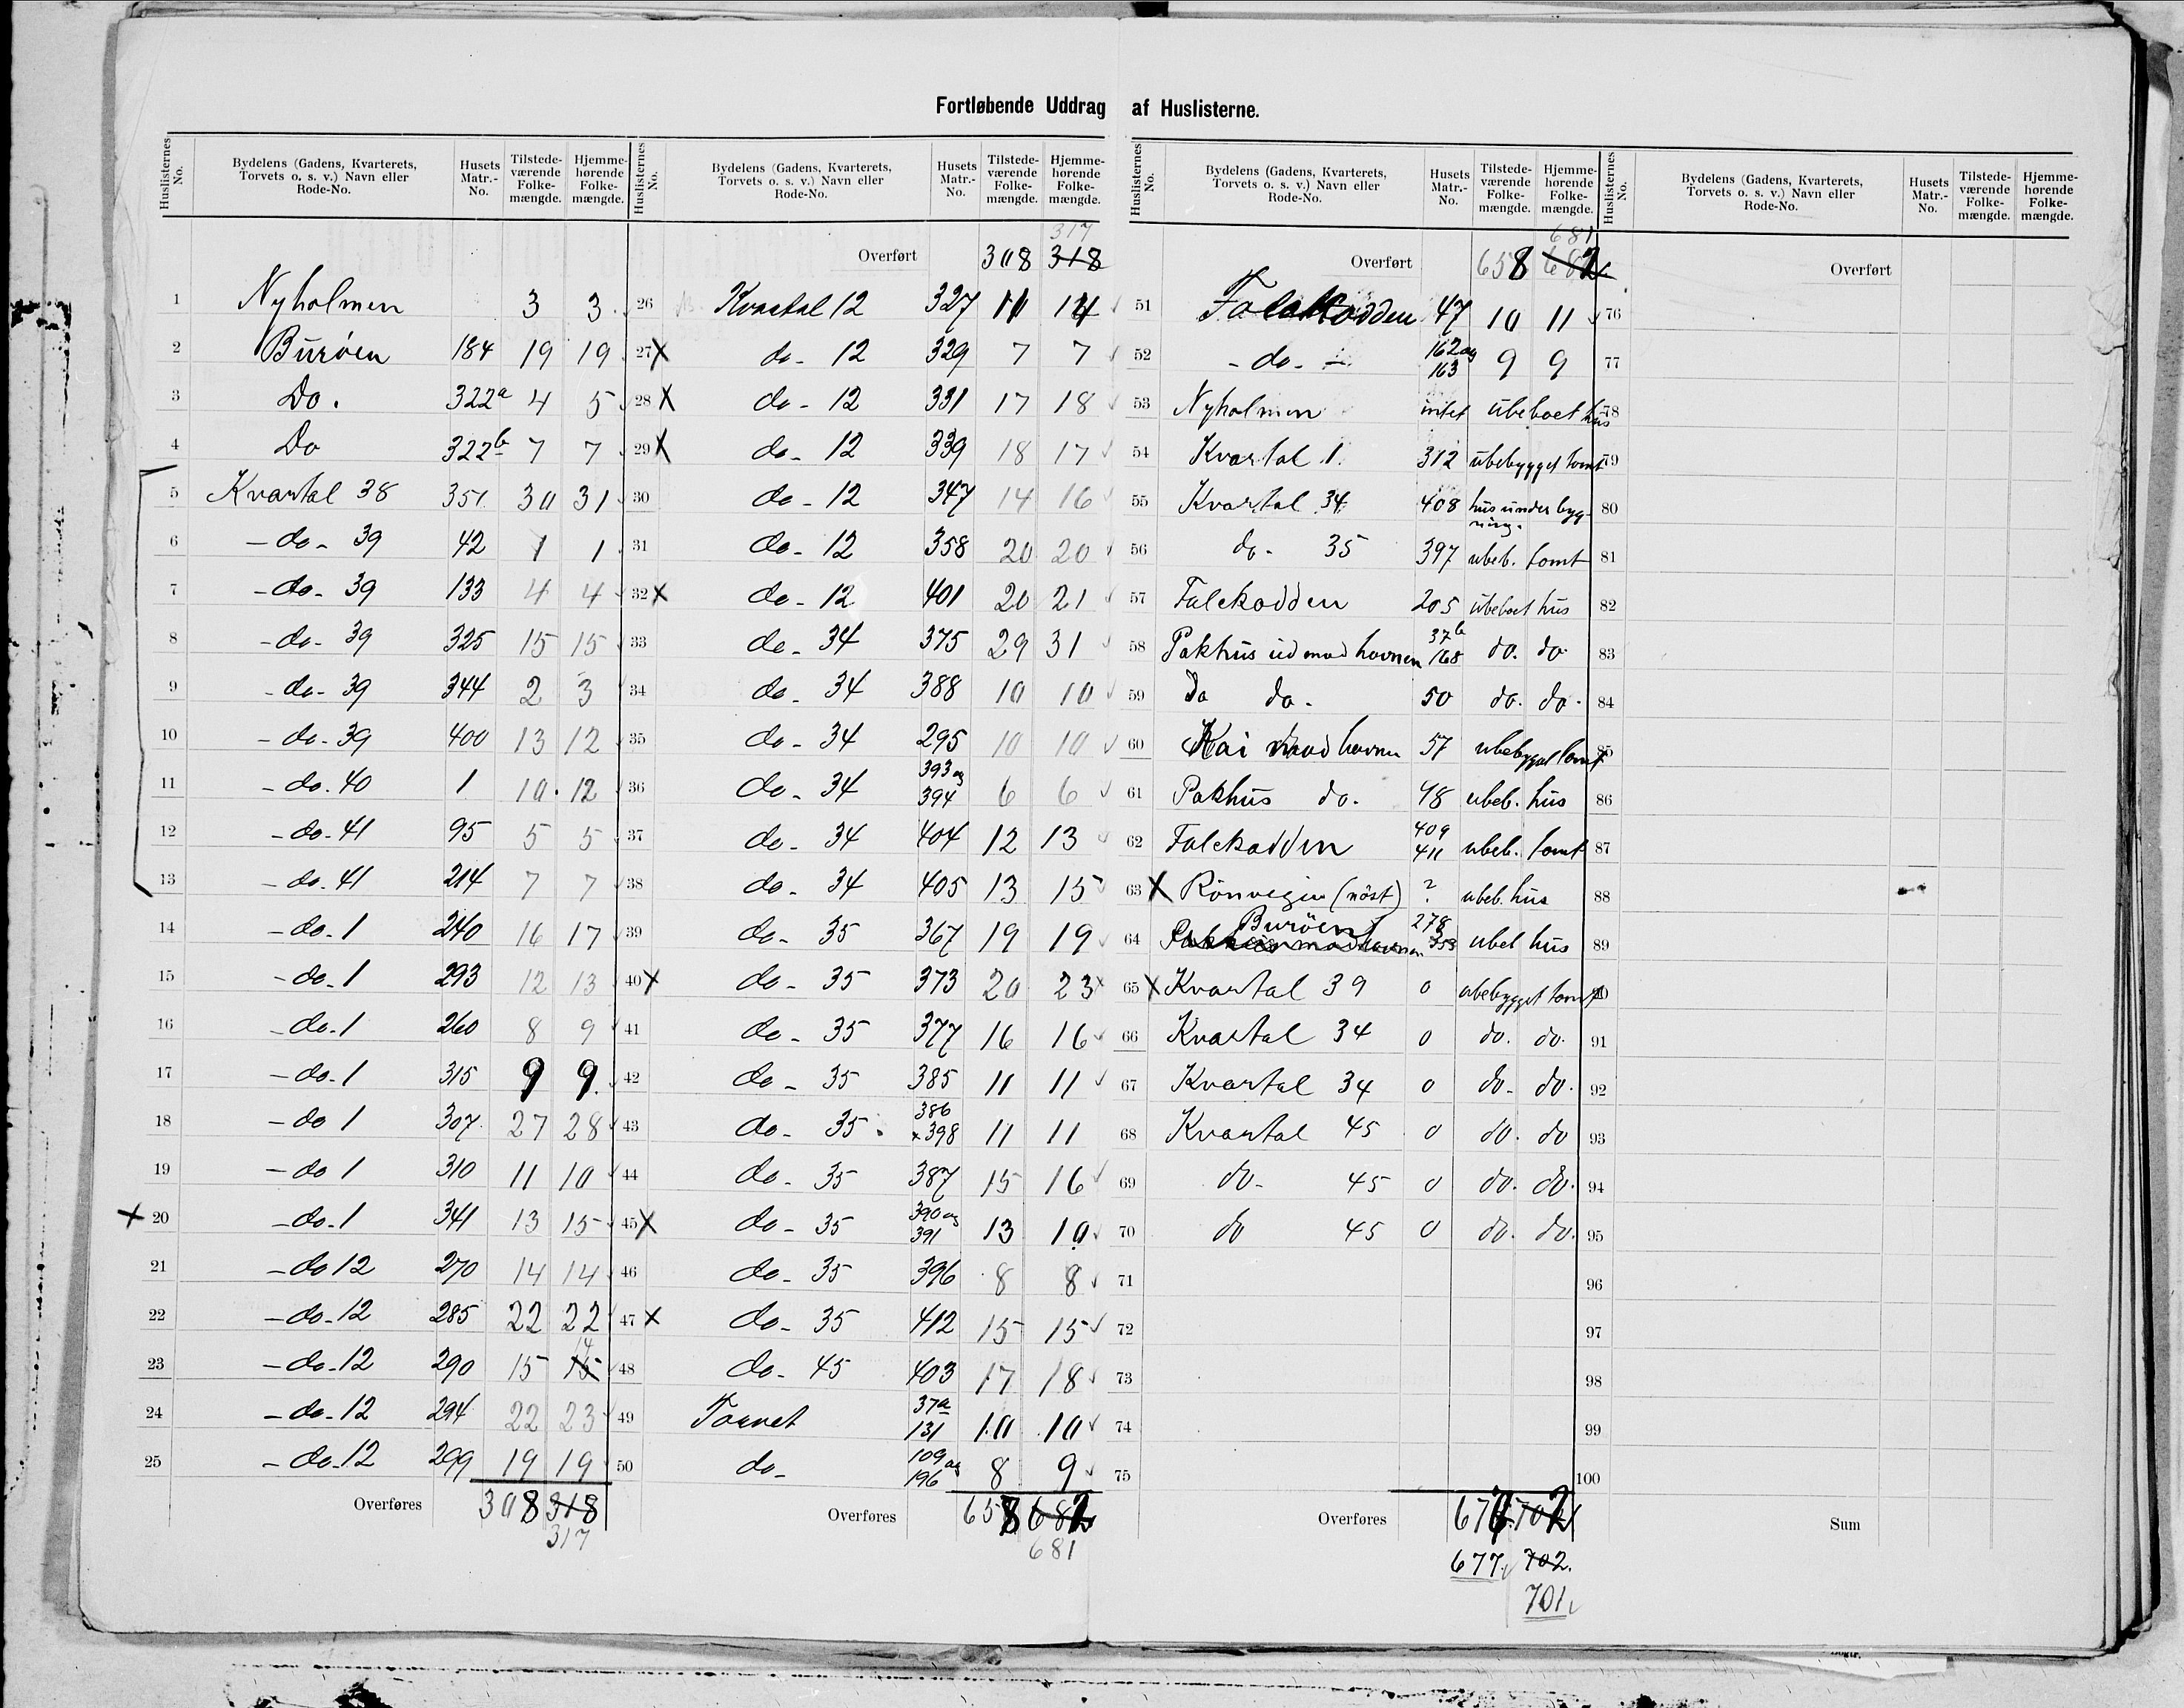 Fortløbende Uddrag af Huslisterne.
Huslisternes No. Bydelens (Gadens, Kvarterets, Torvets o. s. v.) Navn eller Rode-No. Husets Matr.-No. Tilstedeværende Folkemængde. Hjemmehørende Folkemængde.
1 Nyholmen 3 3
2 Burøen 184 19 19
3 Do. 322a 4 5
4 Do 322b 7 7
5 Kvartal 38 351 30 31
6 - do - 39 42 1 1
7 - do - 39 133 4 4
8 - do - 39 325 15 15
9 - do - 39 344 2 3
10 - do - 39 400 13 12
11 - do. 40 1 10 12
12 - do. 41 95 5 5
13 - do. 41 214 7 7
14 - do. 1 240 16 17
15 - do. 1 293 12 13
16 - do. 1 260 8 9
17 - do. 1 315 9 9
18 - do 1 307 27 28
19 - do 1 310 11 10
X 20 - do. 1 341 13 15
21 - do 12 270 14 14
22 - do - 12 285 22 22
23 - do - 12 290 15 15 14
24 - do - 12 294 22 23
25 - do - 12 299 19 19
Overføres 308 318
317
Huslisternes No. Bydelens (Gadens, Kvarterets, Torvets o. s. v.) Navn eller Rode-No. Husets Matr.-No. Tilstedeværende Folkemængde. Hjemmehørende Folkemængde.
317
Overført 308 318
26 Kvartal 12 327 11 14
27 X do - 12 329 7 7
28 X do - 12 331 17 18
29 X do - 12 339 18 17
30 do - 12 347 14 16
31 do - 12 358 20 20
32 X do - 12 401 20 21
33 do - 34 375 29 31
34 do - 34 388 10 10
35 do - 34 295 10 10
36 do - 34 393 og 394 6 6
37 do - 34 404 12 13
38 do - 34 405 13 15
39 do - 35 367 19 19
40 X do - 35 373 20 23
41 do - 35 377 16 16
42 do - 35 385 11 11
43 do - 35 386 x 398 11 11
44 do - 35 387 15 16
45 X do - 35 390 og 391 13 10
46 do - 35 396 8 8
47 X do - 35 412 15 15
48 do - 45 403 17 18
49 Torvet 37a 131 10 10
50 do - 109 og 196 8 9
Overføres 658 682
681
Huslisternes No. Bydelens (Gadens, Kvarterets, Torvets o. s. v.) Navn eller Rode-No. Husets Matr.-No. Tilstedeværende Folkemængde. Hjemmehørende Folkemængde.
681
Overført 658 682
51 Falckodden 47 10 11
52 - do - 162 og 163 9 9
53 Nyholmen intet ubeboet hus
54 Kvartal 1. 312 ubebygget tomt
55 Kvartal 34 408 hus under bygning.
56 do - 35 397 ubeb. tomt
57 Falckodden 205 ubeboet hus
58 Pakhus ud mod havnen 37b 168 do. do
59 Do do. 50 do. do.
60 Kai mod havnen 57 ubebygget tomt
61 Pakhus do. 48 ubeb. hus
62 Falckodden 409 411 ubeb. tomt
63 X Rönvegin (nöst) ? ubeb. hus
64 Burøen 278 ubeb hus
65 X Kvartal 39 0 ubebygget tomt
66 Kvartal 34 0 do. do.
67 Kvartal 34 0 do - do.
68 Kvartal 45 0 do. do
69 do - 45 0 do. do.
70 do 45 0 do. do.
71
72
73
74
75
Overføres 702
677. 702.
701
Huslisternes No. Bydelens (Gadens, Kvarterets, Torvets o. s. v.) Navn eller Rode-No. Husets Matr.-No. Tilstedeværende Folkemængde. Hjemmehørende Folkemængde.
Overført
76
77
78
79
80
81
82
83
84
85
86
87
88
89
90
91
92
93
94
95
96
97
98
99
100
Sum